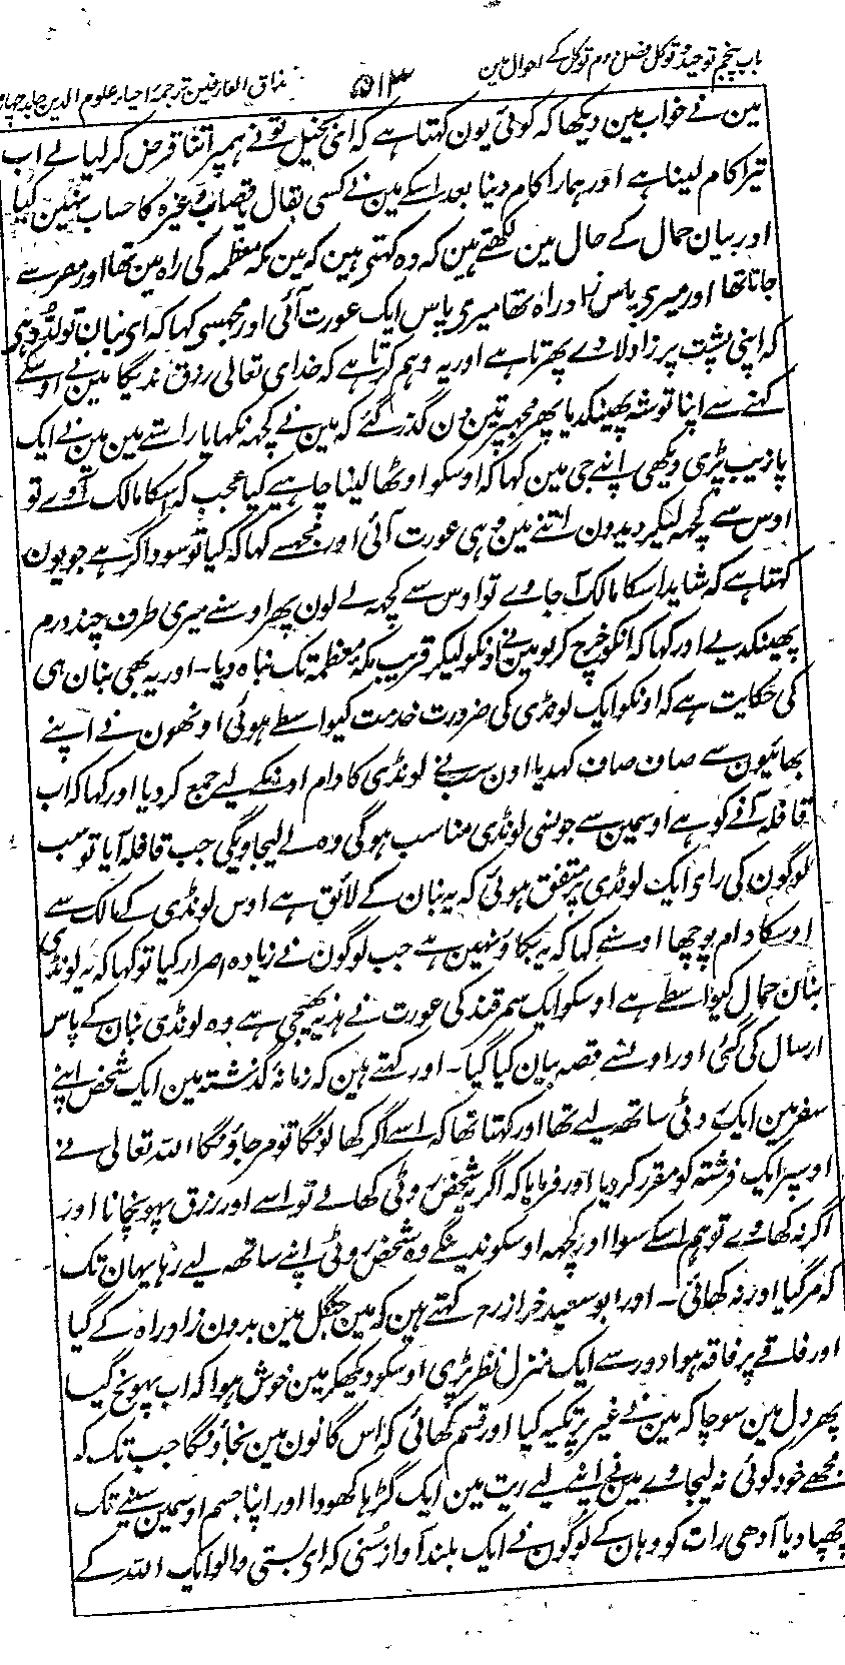 باب پنجم توحید و توکل فصل دوم توکل کے احوال مین
۵۱۳
مذاق العارفین ترجمۂ احیاء علوم الدین جلد چہارم
مین نے خواب مین دیکھا کہ کوئی یون کہتا ہے کہ ای بخیل تو نے ہمپر اتنا قرض کر لیا لے اب
تیرا کام لینا ہے اور ہمارا کام دینا بعد اسکے مین نے کسی بقال یا قصاب وغیرہ کا حساب نہین کیا
اور بیان حمال کے حال مین لکھتے ہین کہ وہ کہتی ہین کہ مین مکہ معظمہ کی راہ مین تھا اور مصر سے
جاتا تھا اور میری پاس زاد راہ تھا میری پاس ایک عورت آئی اور مجھسی کہا کہ ای بنان تو لدّو ہی
کہ اپنی پشت پر زاد لادے پھرتا ہے اور یہ وہم کرتا ہے کہ خدای تعالی رزق ندیگا مین نے اوسکے
کہنے سے اپنا توشہ پھینکدیا پھر مجھپر تین دن گذر گئے کہ مین نے کچھہ نکھایا راستے مین مین نے ایک
پازیب پڑی دیکھی اپنے جی مین کہا کہ اوسکو اوٹھا لینا چاہیے کیا عجب کہ اسکا مالک آوے تو
اوس سے کچھہ لیکر دیدون اتنے مین وہی عورت آئی اور مجھسے کہا کہ کیا تو سوداگر ہے جو یون
کہتا ہے کہ شاید اسکا مالک آ جاوے تو اوس سے کچھہ لے لون پھر اوسنے میری طرف چند درم
پھینکدیے اور کہا کہ انکو خرچ کر لو مین نے اونکو لیکر قریب مکہ معظمہ تک نباہ دیا۔ اور یہ بھی بنان ہی
کی حکایت ہے کہ اونکو ایک لونڈی کی ضرورت خدمت کیواسطے ہوئی اونھون نے اپنے
بھائیون سے صاف صاف کہدیا اون سب نے لونڈی کا دام اونکے لیے جمع کر دیا اور کہا کہ اب
قافلہ آنے کو ہے اوسمین سے جونسی لونڈی مناسب ہوگی وہ لے لیجاویگی جب قافلہ آیا تو سب
لوگون کی رای ایک لونڈی پر متفق ہوئی کہ یہ بنان کے لائق ہے اوس لونڈی کے مالک سے
اوسکا دام پوچھا اوسنے کہا کہ یہ بکاؤ نہین ہے جب لوگون نے زیادہ اصرار کیا تو کہا کہ یہ لونڈی
بنان حمال کیواسطے ہے اوسکو ایک سمرقند کی عورت نے ہدیہ بھیجی ہے وہ لونڈی بنان کے پاس
ارسال کی گئی اور اونسے قصہ بیان کیا گیا۔ اور کہتے ہین کہ زمانۂ گذشتہ مین ایک شخص اپنے
سفر مین ایک روٹی ساتھہ لیے تھا اور کہتا تھا کہ اسے اگر کھا لونگا تو مر جاؤنگا اللہ تعالی نے
اوسپر ایک فرشتہ کو مقرر کر دیا اور فرمایا کہ اگر یہ شخص روٹی کھالے تو اسے اور رزق پہونچانا اور
اگر نہ کھاوے تو ہم اسکے سوا اور کچھہ اوسکو ندینگے وہ شخص روٹی اپنے ساتھہ لیے رہا یہان تک
کہ مر گیا اور نہ کھائی۔ اور ابو سعید خراز رح کہتے ہین کہ مین جنگل مین بدون زاد راہ کے گیا
اور فاقے پر فاقہ ہوا دور سے ایک منزل نظر پڑی اوسکو دیکھکر مین خوش ہوا کہ اب پہونچ گیا
پھر دل مین سوچا کہ مین نے غیر پر تکیہ کیا اور قسم کھائی کہ اس گانون مین نجاؤنگا جب تک کہ
مجھے خود کوئی نہ لیجاوے مین نے اپنے لیے ریت مین ایک گڑہا کھودا اور اپنا جسم اوسمین سینے تک
چھپا دیا آدھی رات کو وہان کے لوگون نے ایک بلند آواز سُنی کہ ای بستی والو ایک اللہ کے